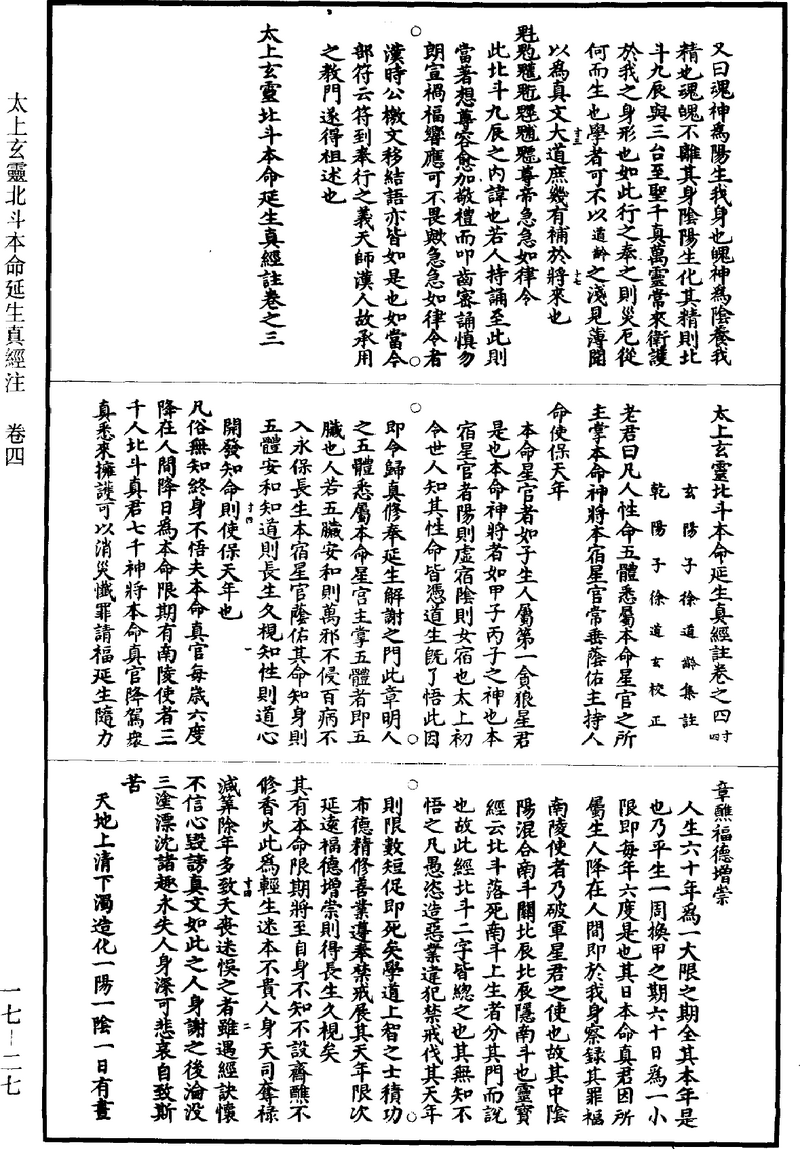 太上玄靈北斗本命延生真經注　卷四
一七－二七
又曰魂神為陽生我身也魄神為陰養我
精也魂魄不離其身陰陽生化其精則北
斗九辰與三台至聖千真萬靈常來衛護
於我之身形也如此行之奉之則災厄從
何而生也學者可不以道齡之淺見薄聞
十三
十七
以為真文大道庶幾有補於將來也
尊帝急急如律令
此北斗九辰之內諱也若人持誦至此則
當著想尊容愈加敬禮而叩齒密誦慎勿
朗宣禍福響應可不畏歟急急如律令者
漢時公檄文移結語亦皆如是也如當今
部符云符到奉行之義天師漢人故承用
之教門遂得祖述也
太上玄靈北斗本命延生真經註卷之三
太上玄靈北斗本命延生真經註卷之四 寸四
玄陽子徐道齡集註
乾陽子徐道玄校正
老君曰凡人性命五體悉屬本命星官之所
主掌本命神將本宿星官常垂蔭佑主持人
命使保天年
本命星官者如子生人屬第一貪狼星君
是也本命神將者如甲子丙子之神也本
宿星官者陽則虛宿陰則女宿也太上初
令世人知其性命皆憑道生既了悟此因
即令歸真修奉延生解謝之門此章明人
之五體悉屬本命星官主掌五體者即五
臟也人若五臟安和則萬邪不侵百病不
入永保長生本宿星官蔭佑其命知身則
五體安和知道則長生久視知性則道心
開發知命則使保天年也
寸四
一
凡俗無知終身不悟夫本命真官每歲六度
降在人間降日為本命限期有南陵使者三
千人北斗真君七千神將本命真官降駕眾
真悉來擁護可以消災懺罪請福延生隨力
章醮福德增崇
人生六十年為一大限之期全其本年是
也乃平生一周換甲之期六十日為一小
限即每年六度是也其日本命真君因所
屬生人降在人間即於我身察錄其罪福
南陵使者乃破軍星君之使也故其中陰
陽混合南斗關北辰北辰隱南斗也靈寶
經云北斗落死南斗上生者分其門而說
也故此經北斗二字皆總之也其無知不
悟之凡愚恣造惡業違犯禁戒伐其天年
則限數短促即死矣學道上智之士積功
布德精修善業遵奉禁戒展其天年限次
延遠福德增崇則得長生久視矣
其有本命限期將至自身不知不設齋醮不
修香火此為輕生迷本不貴人身天司奪祿
減算除年多致夭喪迷悞之者雖遇經訣懷
寸四
二
不信心毀謗真文如此之人身謝之後淪沒
三塗漂沈諸趣永失人身深可悲哀自致斯
苦
天地上清下濁造化一陽一陰一日有晝